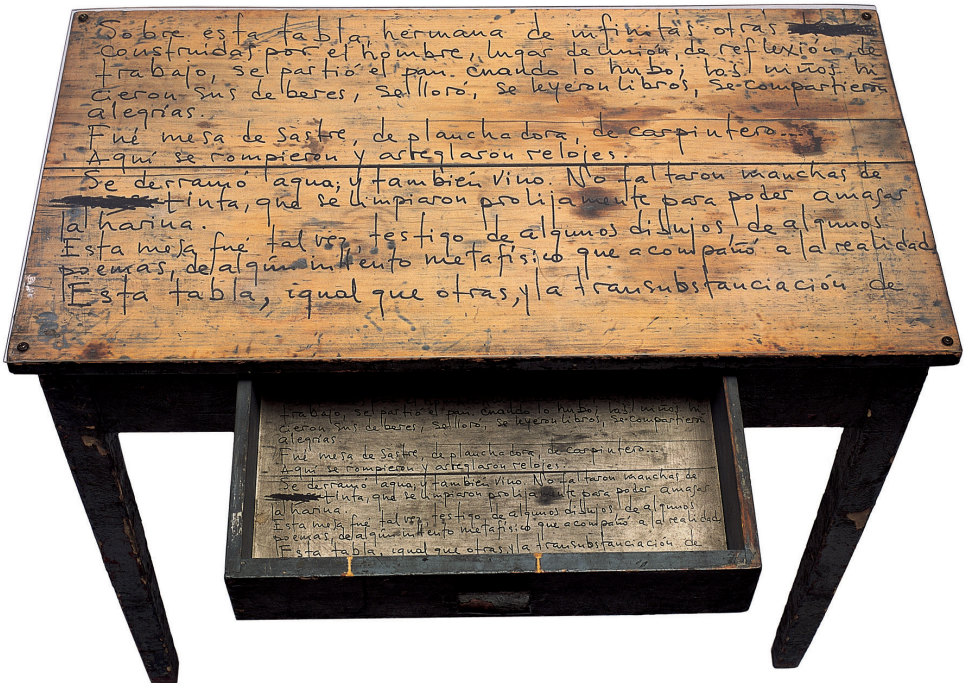 Sobre esta tabla, hermana de infinitas otras
construidas por el hombre, lugar de unión, de reflexión, de
trabajo, se partió el pan cuando lo hubo; los niños hi
cieron sus deberes, se lloró, se leyeron libros, se compartieron
alegrías.
Fué mesa de sastre, de planchadora, de carpintero...
Aquí se rompieron y arreglaron relojes.
Se derramó agua, y también vino. No faltaron manchas de
tinta, que se limpiaron prolijamente para poder amasar
la harina.
Esta mesa fué tal vez, testigo de algunos dibujos, de algunos
poemas, de algún intento metafísico que acompañó a la realidad
Esta tabla, igual que otras, y la transubstanciación de
trabajo, se partió el pan cuando lo hubo; los niños hi
cieron sus deberes, se lloró, se leyeron libros, se compartieron
alegrías
Fué mesa de sastre, de planchadora, de carpintero...
Aquí se rompieron y arreglaron relojes.
Se derramó agua, y también vino. No faltaron manchas de
tinta, que se limpiaron prolijamente para poder amasar
la harina.
Esta mesa fué tal vez, testigo de algunos dibujos, de algunos
poemas, de algún intento metafísico que acompañó a la realidad
Esta tabla, igual que otras, y la transubstanciación de